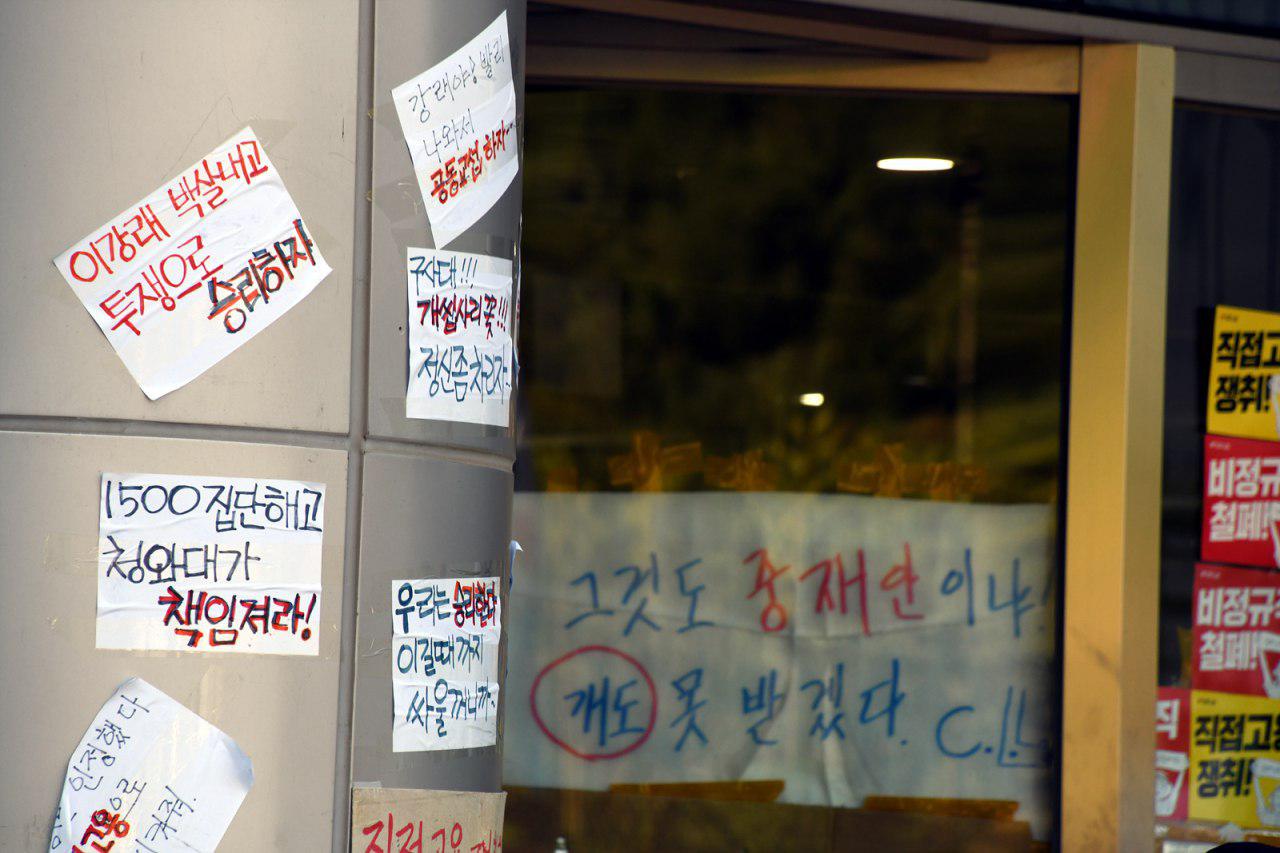 이강래 박살내고
투쟁으로
승리하자
강래야! 빨리
나와서
공동교섭 하자...
구사대!!!
개씹사리꽃!!!
정신좀차리자..
1500 집단해고
청와대가
책임져라!
우리는 승리한다
이길때까지
싸울꺼니까~
인정했다
고용으로
직접고용
그것도 중재안이냐
개도 못 받겠다.
직접고
쟁취!
비정규
철폐!
비정규
철폐!
직
직접고
쟁취!